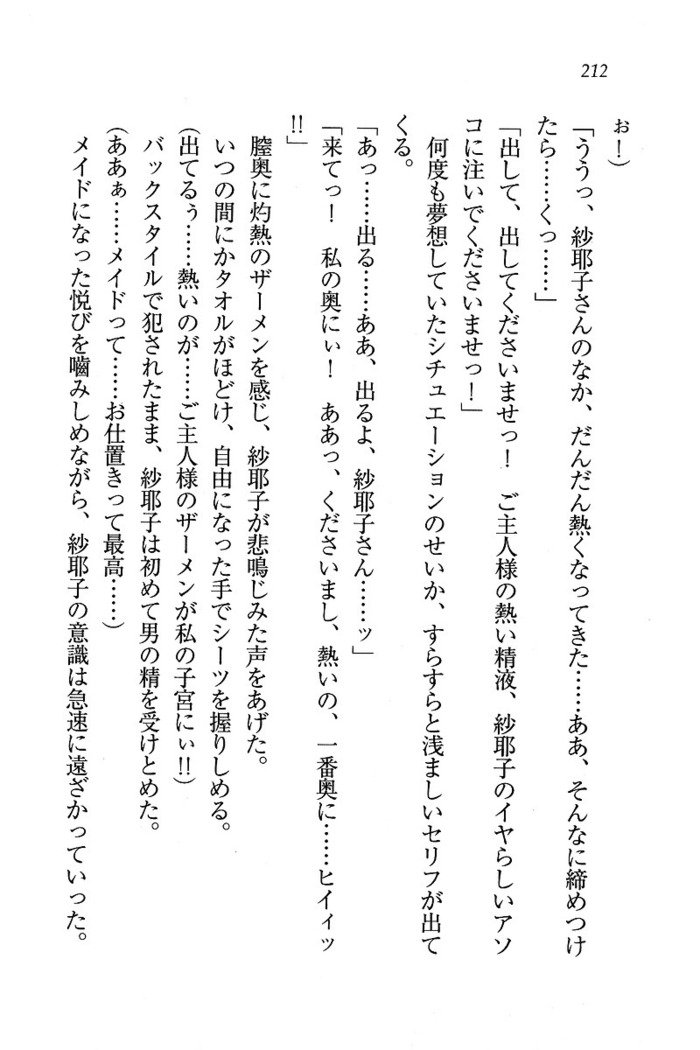 212
お！）
「ううっ、紗耶子さんのなか、だんだん熱くなってきた……ああ、そんなに締めつけ
たら……くっ……」
「出して、出してくださいませっ！　ご主人様の熱い精液、紗耶子のイヤらしいアソ
コに注いでくださいませっ！」
何度も夢想していたシチュエーションのせいか、すらすらと浅ましいセリフが出て
くる。
「あっ……出る……ああ、出るよ、紗耶子さん……ッ」
「来てっ！　私の奥にぃ！　ああっ、くださいまし、熱いの、一番奥に……ヒイィッ
!!」
膣奥に灼熱のザーメンを感じ、紗耶子が悲鳴じみた声をあげた。
いつの間にかタオルがほどけ、自由になった手でシーツを握りしめる。
（出てるぅ……熱いのが……ご主人様のザーメンが私の子宮にぃ!!）
バックスタイルで犯されたまま、紗耶子は初めて男の精を受けとめた。
（ああぁ……メイドって……お仕置きって最高……）
メイドになった悦びを嚙みしめながら、紗耶子の意識は急速に遠ざかっていった。